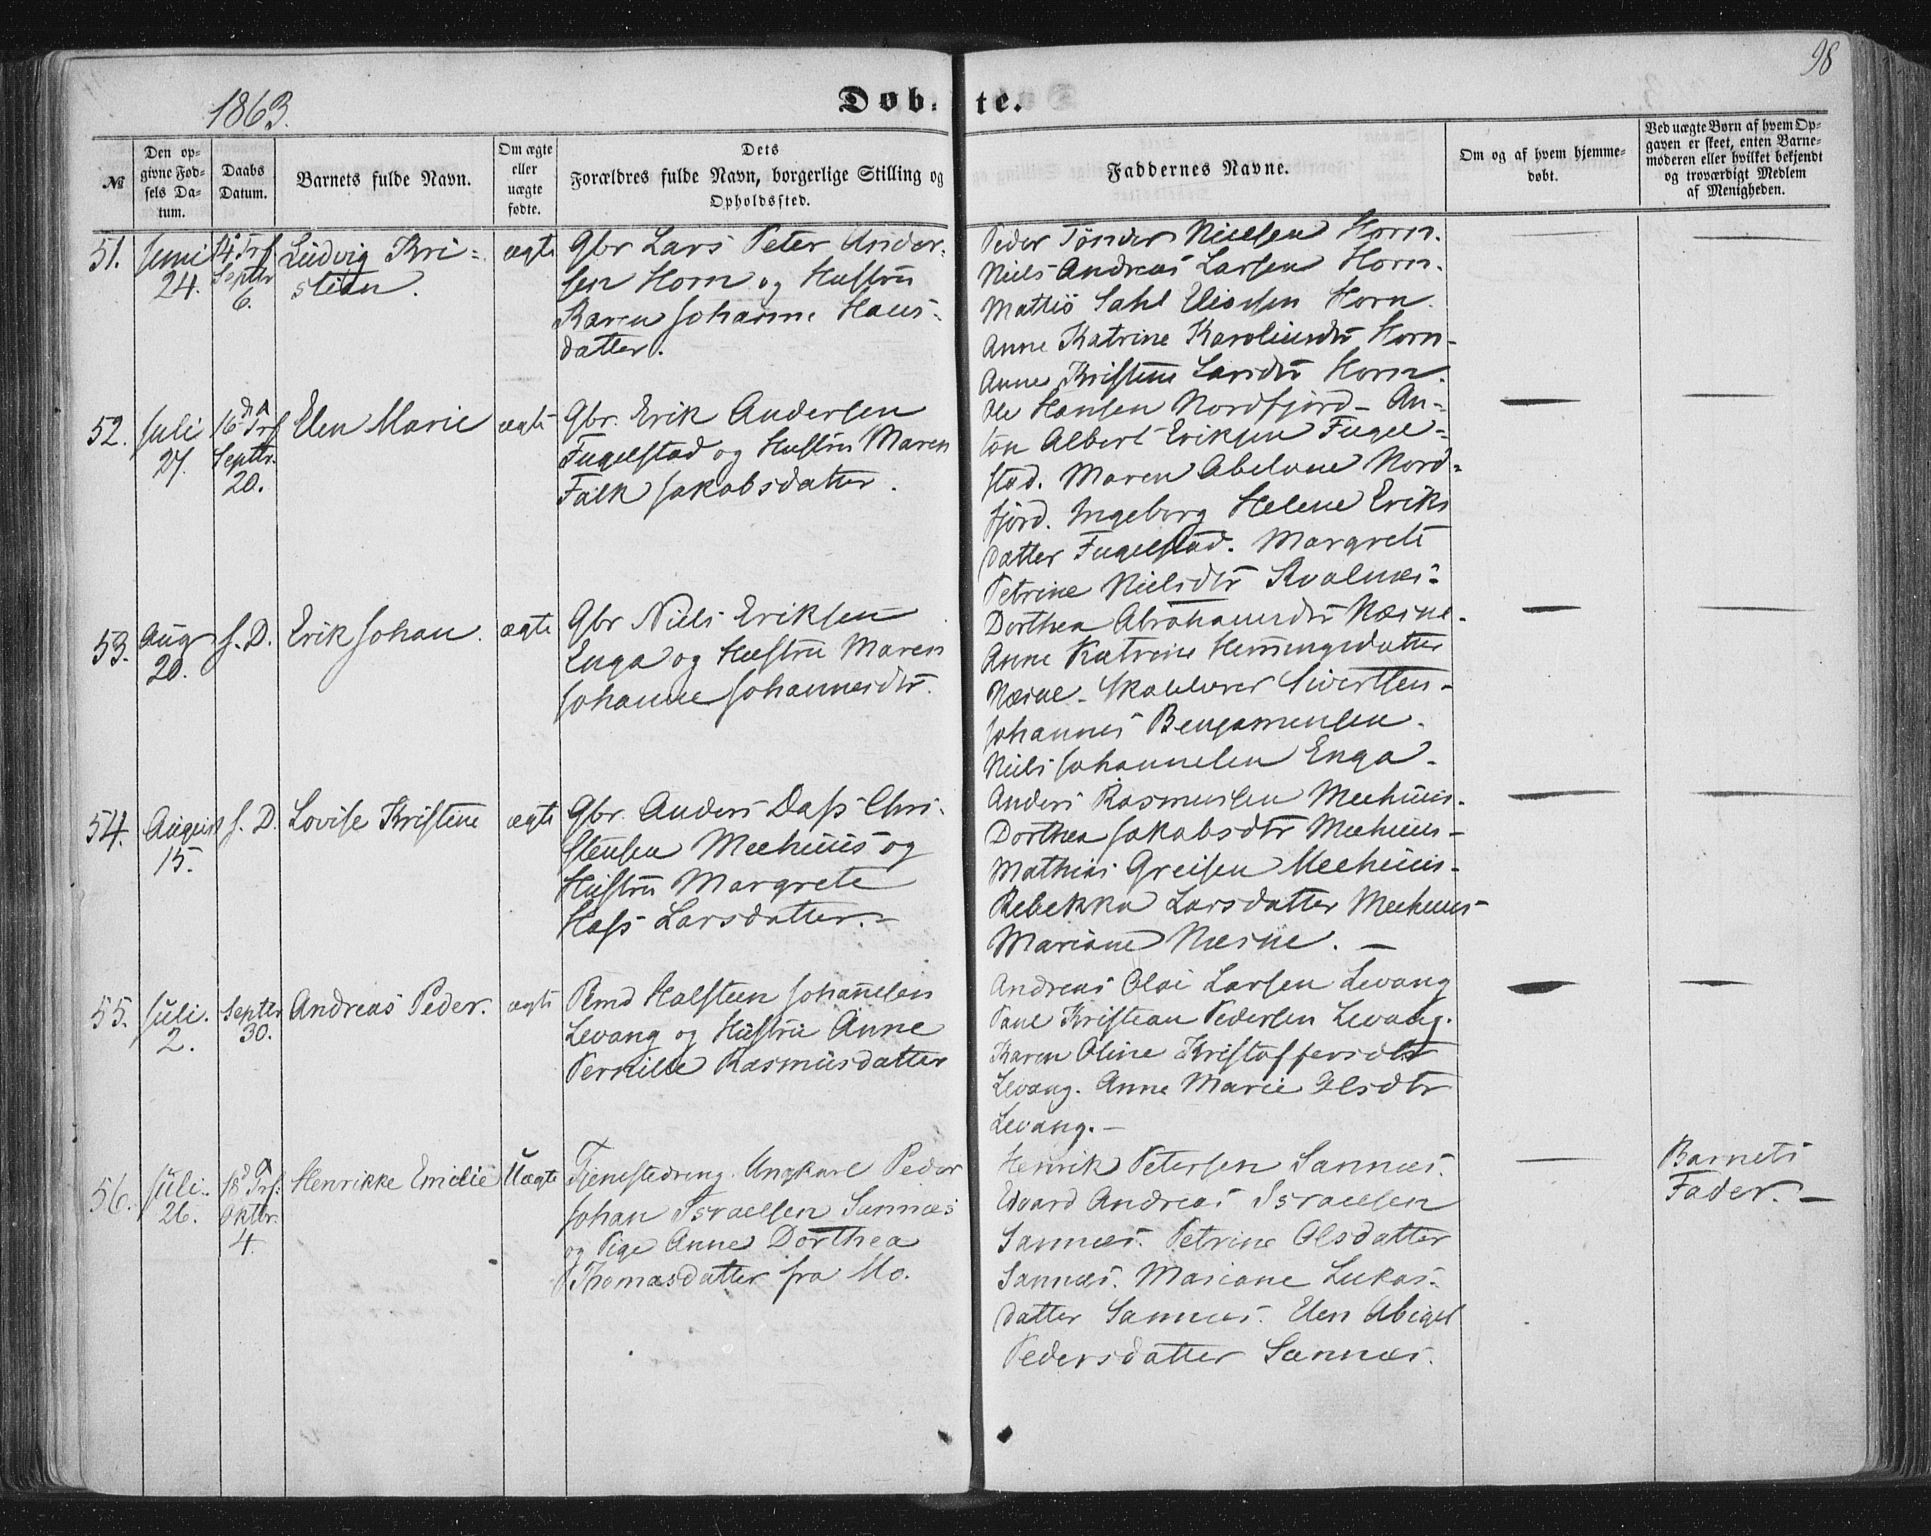 1863.
Døb-te.
98
№
Den op-
givne Fød-
sels Da-
tum.
Daabs
Datum.
Barnets fulde Navn.
Om ægte
eller
uægte
fødte.
Dets
Forældres fulde Navn, borgerlige Stilling og
Opholdssted.
Faddernes Navne.
Om og af hvem hjemme-
døbt.
Ved uægte Børn af hvem Op-
gaven er skeet, enten Barne-
moderen eller hvilket bekjendt
og troværdigt Medlem
af Menigheden.
51.
Juni
24.
14 Trf
Septbr
6.
Ludvig Kri-
stian.
ægte
Gbr Lars Peter Ander-
sen Horn og Hustru
Karen Johanne Hans-
datter.
Peder Tønder Nielsen Horn.
Niels Andreas Larsen Horn.
Horn.
Anne Katrine Karoliusdtr Horn-
Anne Kristine Larsdtr Horn.
52.
Juli
27.
16 Trf
Septbr.
20.
Elen Marie
ægte
Gbr. Erik Andersen
Fugelstad og Hustru Maren
Falk Jakobsdatter.
Ole Hansen Nordfjord- An-
ton Albert Eriksen Fugel-
stad. Maren Abelone Nord-
fjord. Ingeborg Helene Eriks
datter Fugelstad. Margrete
Petrine Nielsdtr Kvalnæs-
53.
Aug
20.
s. D.
Erik Johan.
ægte
Gbr Niels Eriksen
Enga og Hustru Maren
Johanne Johannesdtr.
Dorthea Abrahamsdtr Næsne-
Anne Katrine Henningsdatter
Næsne- Sivertsen-
Johannes Benjaminsen.
Niels Johannesen Enga-
54.
August
15.
s. D.
Lovise Kristine
ægte
Gbr. Anders Dass Chri-
stensen Meehuus og
Hustru Margrete
Hass Larsdatter.-
Anders Rasmussen Meehuus-
Dorthea Jakobsdtr Meehuus-
Mathias Greisen Meehuus-
Rebekka Larsdatter Meehuus-
Mariane Næsne. -
55.
Juli.
2.
Septbr
30.
Andreas Peder.
ægte
Rmd Halsteen Johannesen
Levang og Hustru Anne
Pernille Rasmusdatter
Andreas Olai Larsen Levang
Paul Kristian Pedersen Levang.
Karen Oline Kristoffersdtr
Levang. Anne Marie Olsdtr
Levang.-
56.
Juli.
26.
18 Trf.
Oktbr.
4.
Henrikke Emilie
Uægte
Tjenestedreng Ungkarl Peder
Johan Israelsen Sannæs
og Pige Anne Dorthea
Thomasdatter fra Mo.
Henrik Petersen Sannæs.
Edvard Andreas Israelsen
Sannæs. Petrine Olsdatter
Sannæs. Mariane Lukas-
datter Sannæs. Elen Abigel
Pedersdatter Sannæs.
Barnets
Fader.-